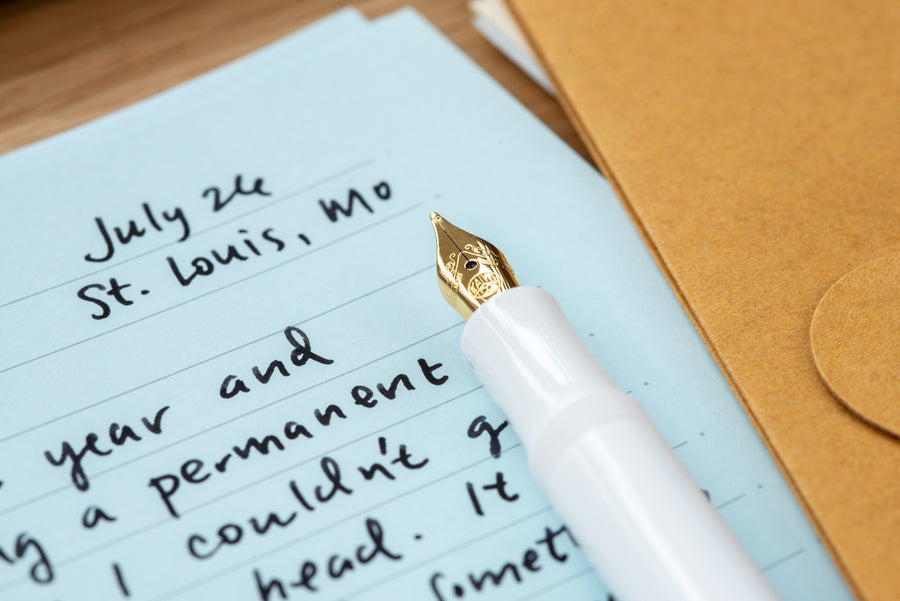 July 26
St. Louis, MO
year and
a permanent
I couldn't g
head. It
somet